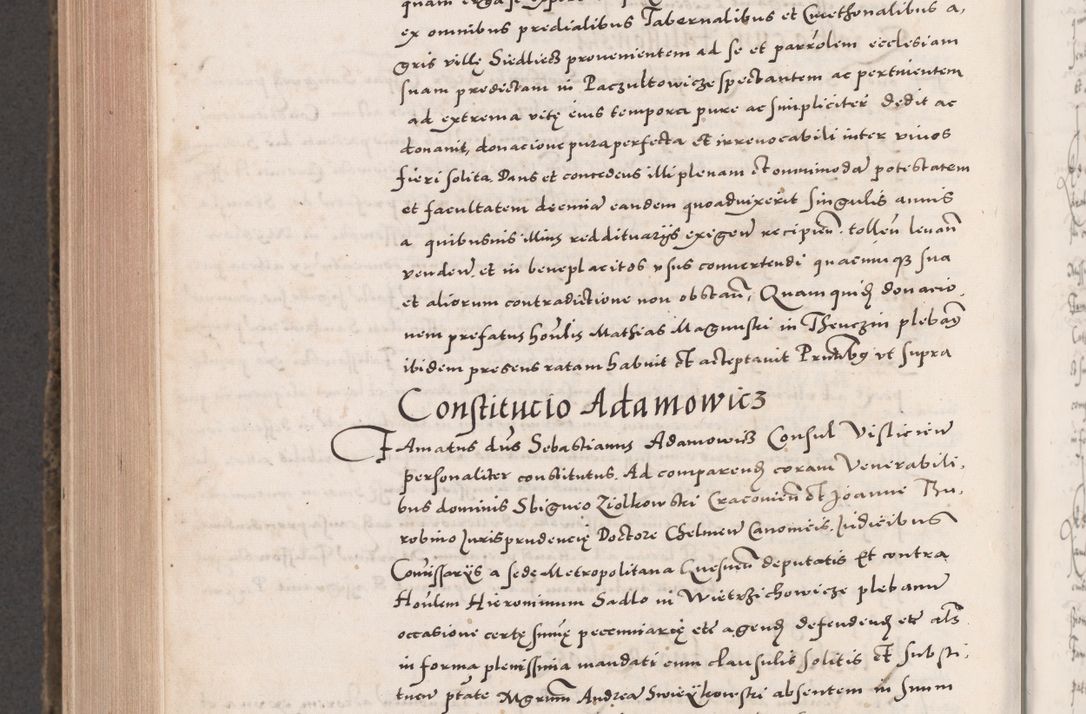 ex omnibus predialibus Tabernalibus et Cmethonalibus a,
gris villę Siedliecz provenientem ad se et parrolem ecclesiam
suam predictam in Paczultowicze spectantem ac pertinentem
ad extrema vitę eius tempora pure ac simpliciter dedit ac
donauit, donacione pura perfecta et irreuocabili inter viuos
fieri solita. Dans et concedens illi plenam et omnimodā potestatem
et facultatem decimā eandem quoad vixerit singulis annis
a quibusuis illius reddituarijs exigen̄ recipien̄. tollen̄ leuan̄
venden̄ et in beneplacitos vsus conuertendi quacunque sua
et aliorum contradictione non obstan̄, Quamquid donacio
nem prefatus hoūlis Mathias Magnuski in Thenczin pleban̄
ibidem presens ratam habuit et acceptauit Pntibus vt supra
Constitucio Adamowicz
FAmatus dn̄s Sebastianus Adamowicz Consul Vislicien̄
personaliter constitutus. Ad comparend coram Venerabili,
bus dominis Sbigneo Ziolkowski Cracovien̄ et Joanne Tu,
robino Jurisprudencię Doctore Chelmen̄ Canonicis. Judicibus
Comissarijs a sede Metropolitana Gnesnen̄ deputatis Et contra
Hoūlem Hieronimum Sadlo in Wietrzichowicze plebanū
occasione certę sumę pecuniarię etc agend defendend etc als̄
in forma plenissima mandati cum clausulis solitis et substi,
tuen̄ ptāte Mgrum Andreā Swieykowski absentem in suum